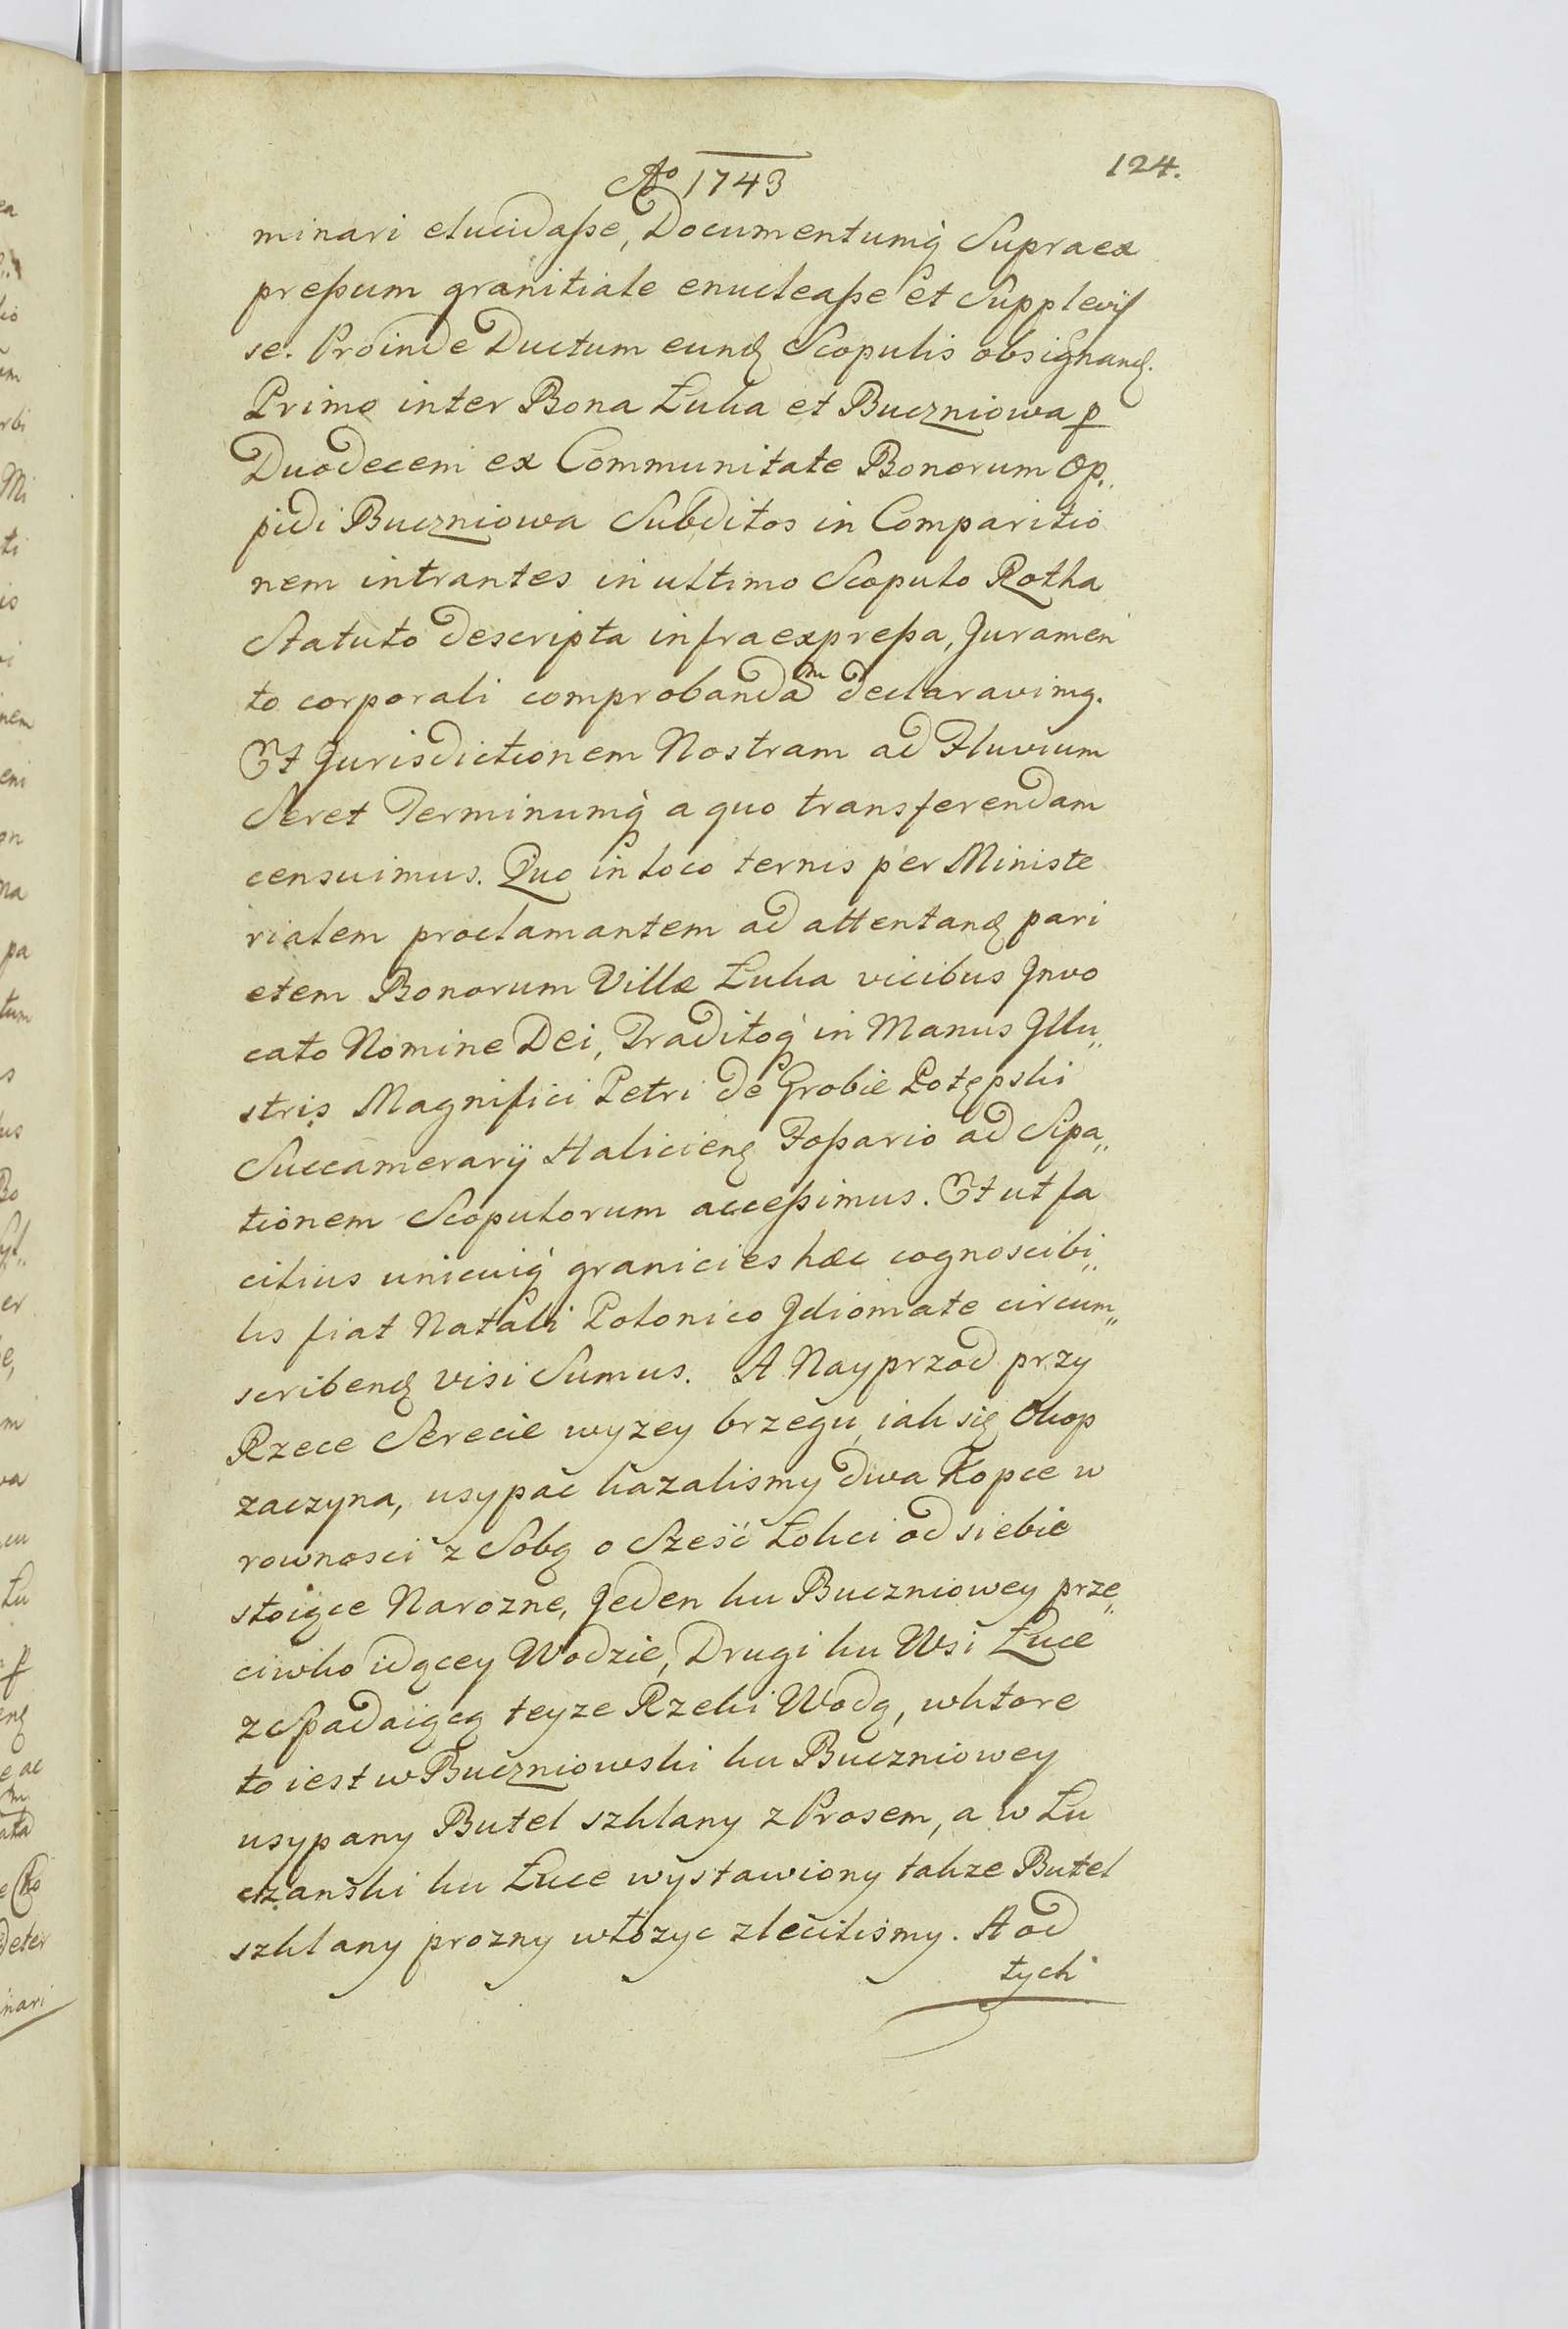 124.
Ao 1743
minari elucidaße, Documentumq́ Supraex
preßum granitiale enucleaße et Supplevis
se. Proinde Ductum eundꝫ Scopulis obsignandꝫ.
Primo inter Bona Łuka et Buczniowa ꝑ
Duodecem ex Communitate Bonorum Op„
pidi Buczniowa Subditos in Comparitio
nem intrantes in ultimo Scopulo Rotha
Statuto descripta infraexpreßa, Juramen
to corporali comprobandam declaravimꝫ.
Et Jurisdictionem Nostram ad Fluvium
Seret Terminumq́ a quo transferendam
censuimus. Quo in loco ternis per Ministe
rialem proclamantem ad attentandꝫ pari
etem Bonorum Villæ Łuka vicibus Jnvo
cato Nomine Dei, Traditoq́ in Manus Jllu„
stris Magnifici Petri de Grobie Potępski
Succamerarÿ Haliciensꝫ Foßario ad Sipa„
tionem Scopulorum acceßimus. Et ut fa
cilius unicuiq́ granicies hæc cognoscibi„
lis fiat Natali Polonico Jdiomate circum„
scribendꝫ visi Sumus. A Nayprzod przy
Rzece Serecie wyzey brzegu, iak się Okop
zaczyna, usypać kazalismy dwa Kopce w
rownosci z Sobą o Sześć Łokci od siebie
stoiące Narozne, Jeden ku Buczniowey prze„
ciwko idącey Wodzie, Drugi ku Wsi Łuce
z Spadaiącą teyze Rzeki Wodą, wktore
to iest w Buczniowski ku Buczniowey
usypany Butel szklany z Prosem, a w Łu
czanski ku Łuce wystawiony takze Butel
szklany prozny włozyc zlecilismy. A od
tych